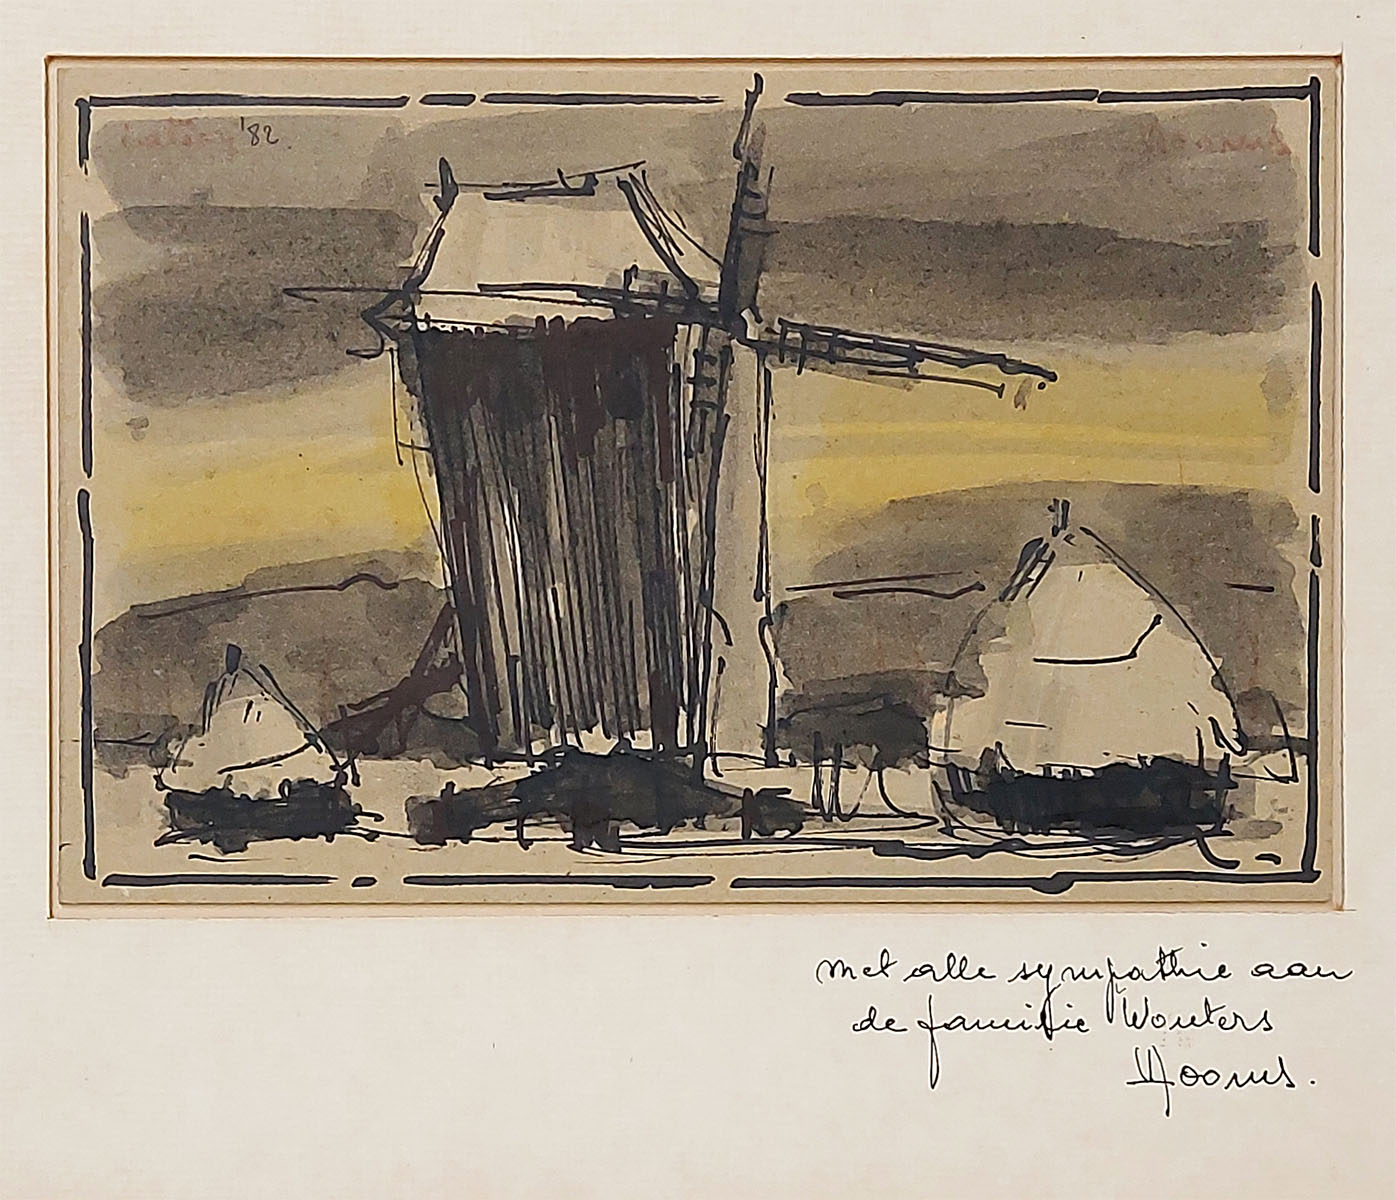 '82.
met alle sympathie aan
de familie Wouters